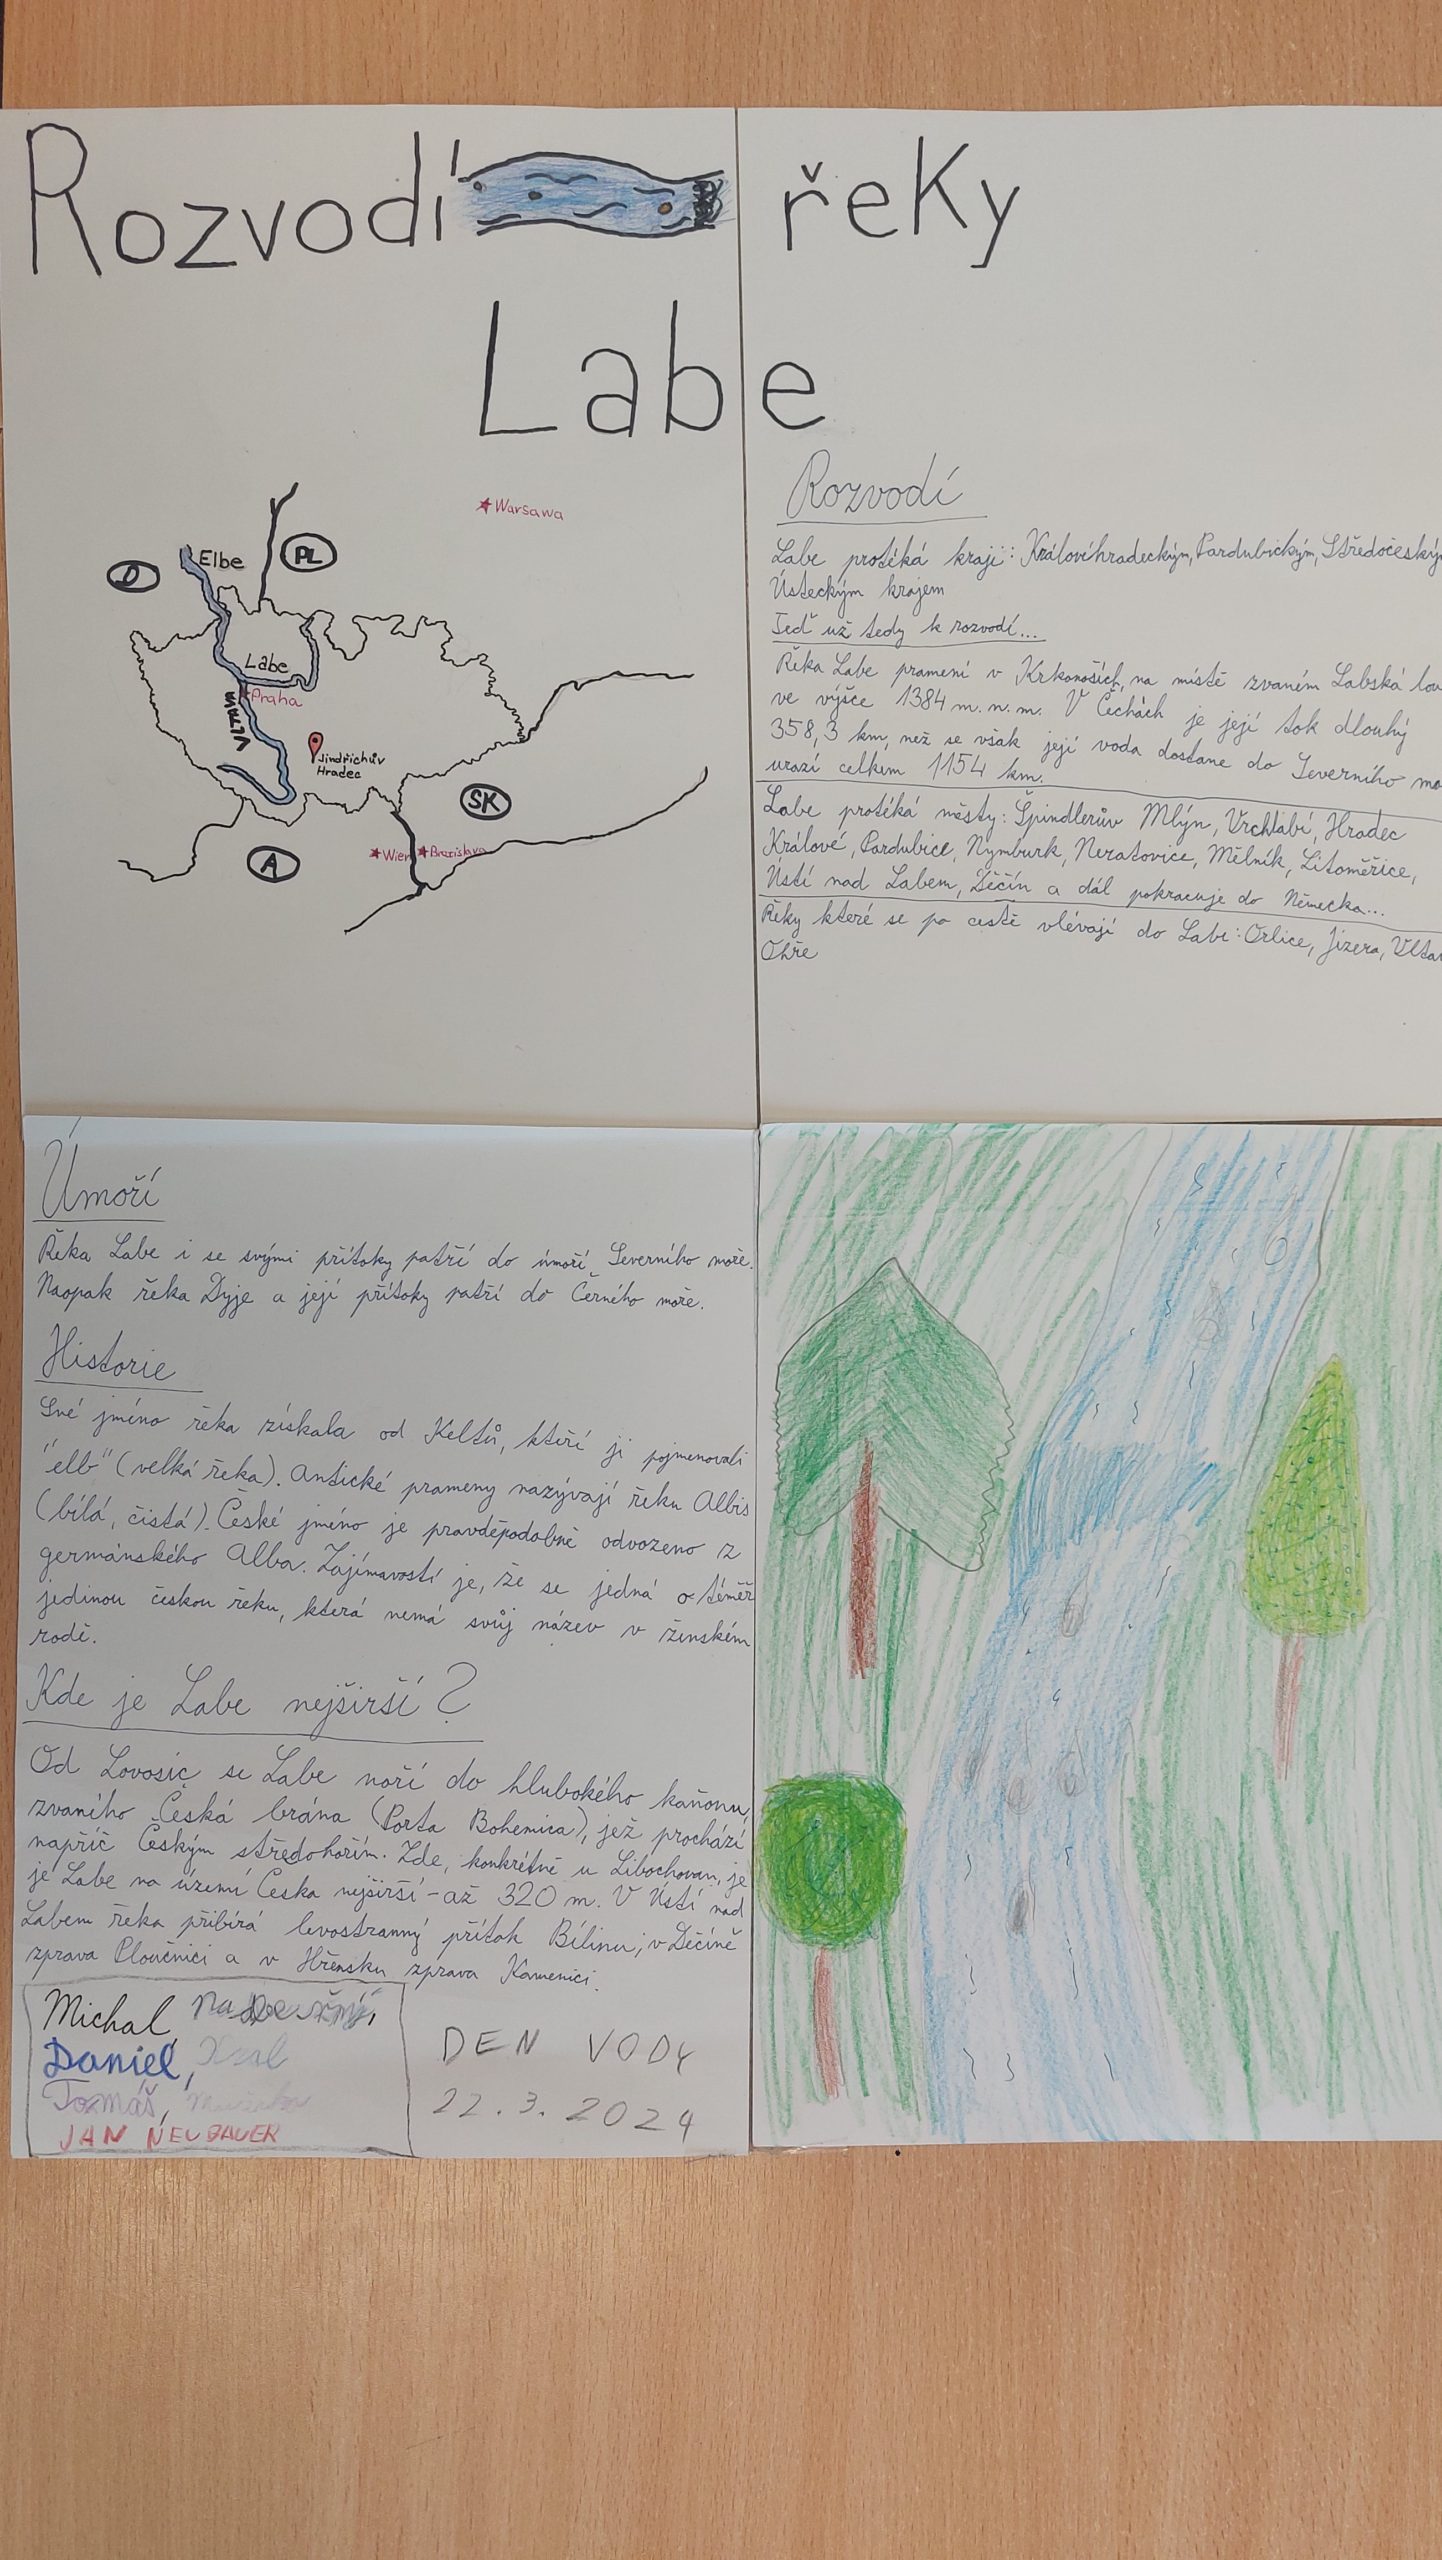 Rozvodí řeky
Labe
Warsawa
Elbe
PL
D
Labe
Praha
Vltava
Jindřichův
Hradec
SK
Wien
Bratislava
A
Rozvodí
Labe protéká kraji: Královéhradeckým, Pardubickým, Středočeským
Ústeckým krajem
Teď už tedy k rozvodí...
Řeka Labe pramení v Krkonoších, na místě zvaném Labská lou
ve výšce 1384 m.n.m. V Čechách je její tok dlouhý
358,3 km, než se však její voda dostane do Severního mo
urazí celkem 1154 km.
Labe protéká městy: Špindlerův Mlýn, Vrchlabí, Hradec
Králové, Pardubice, Nymburk, Neratovice, Mělník, Litoměřice,
Ústí nad Labem, Děčín a dál pokracuje do Německa...
Řeky které se po cestě vlévají do Labe: Orlice, Jizera, Vltav
Ohře
Úmoří
Řeka Labe i se svými přítoky patří do úmoří Severního moře.
Naopak řeka Dyje a její přítoky patří do Černého moře.
Historie
Své jméno řeka získala od Keltů, kteří ji pojmenovali
"elb" (velká řeka). Antické prameny nazývají řeku Albis
(bílá, čistá). České jméno je pravděpodobně odvozeno z
germánského Alba. Zajímavostí je, že se jedná o téměř
jedinou českou řeku, která nemá svůj název v ženském
rodě.
Kde je Labe nejširší?
Od Lovosic se Labe noří do hlubokého kaňonu,
zvaného Česká brána (Porta Bohemica), jež prochází
napříč Českým středohořím. Zde, konkrétně u Libochovan, je
je Labe na území Česka nejširší - až 320 m. V Ústí nad
Labem řeka přibírá levostranný přítok Bílinu, v Děčíně
zprava Ploučnici a v Hřensku zprava Kamenici.
Michal
Daniel, Kral
Tomáš,
JAN NEUBAUER
DEN VODY
22.3.2024